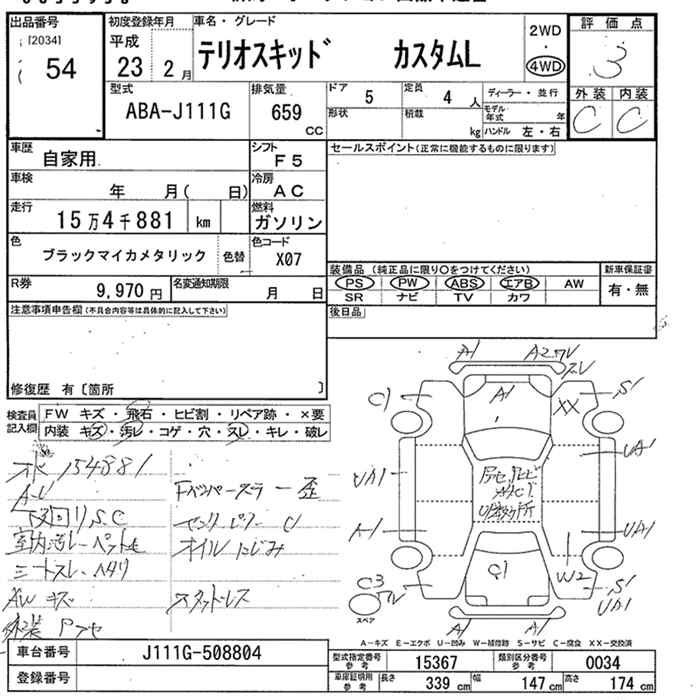 出品番号 初度登録年月 車名・グレード 2WD 評価点
[2034] 平成 テリオスキッド カスタムL ・ 3
54 23 2月 4WD
型式 排気量 ドア 5 定員 4人 ディーラー・並行 外装 内装
ABA-J111G 659 CC 形状 積載 kg モデル年式 年 C C
ハンドル 左・右
車歴 自家用 シフト F5 セールスポイント(正常に機能するものに限ります)
車検 年 月( 日) 冷房 AC
走行 15万4千881 km 燃料 ガソリン
色 ブラックマイカメタリック 色替 色コード X07
装備品 (純正品に限り○をつけてください) 新車保証書
R券 9,970円 名変通知期限 月 日 PS PW ABS エアB AW 有・無
SR ナビ TV カワ
注意事項申告欄(不具合内容等は具体的に記入して下さい) 後日品
修復歴 有〔箇所 〕
検査員記入欄 FW キズ・飛石・ヒビ割・リペア跡・×要
内装 キズ・汚レ・コゲ・穴・スレ・キレ・破レ
A1 A2
A1 S1
C1 XX
154881 UA1
Fバンパーズラー歪 UA1
下回りS.C センターピラーU
室内汚レーペット毛 オイルにじみ A1 UA1
シートスレ・ヘタリ
AWキズ スタッドレス C3 C1 W2 S1
UA1
スペア A1 A1
A-キズ E-エクボ U-凹み W-補修跡 S-サビ C-腐食 XX-交換済
車台番号 J111G-508804 型式指定番号 参考 15367 類別区分番号 参考 0034
登録番号 車庫証明用 参考 長さ 339cm 幅 147cm 高さ 174cm